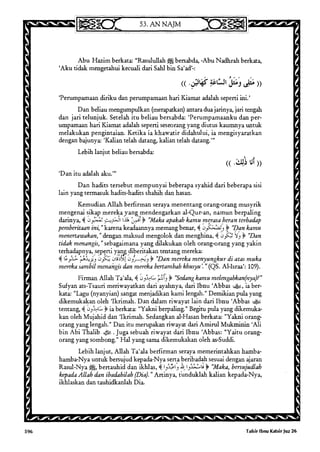 53. AN NAJM
Abu Hazim berkata: "Rasulullah ﷺ bersabda, -Abu Nadhrah berkata,
'Aku tidak mengetahui kecuali dari Sahl bin Sa'ad'-:
(( مَثَلِيْ وَمَثَلُ السَّاعَةِ كَهَاتَيْنِ. ))
'Perumpamaan diriku dan perumpamaan hari Kiamat adalah seperti ini.'
Dan beliau mengumpulkan (merapatkan) antara dua jarinya, jari tengah
dan jari telunjuk. Setelah itu beliau bersabda: 'Perumpamaanku dan per-
umpamaan hari Kiamat adalah seperti seseorang yang diutus kaumnya untuk
melakukan pengintaian. Ketika ia khawatir didahului, ia mengisyaratkan
dengan bajunya: 'Kalian telah datang, kalian telah datang.'"
Lebih lanjut beliau bersabda:
(( وَأَنَا ذَلِكَ. ))
'Dan itu adalah aku.'"
Dan hadits tersebut mempunyai beberapa syahid dari beberapa sisi
lain yang termasuk hadits-hadits shahih dan hasan.
Kemudian Allah berfirman seraya menentang orang-orang musyrik
mengenai sikap mereka yang mendengarkan al-Qur-an, namun berpaling
darinya, ﴾ تَعْجَبُونَ ﴿ "Maka apakah kamu merasa heran terhadap
pemberitaan ini," karena keadaannya memang benar, ﴾ وَتَضْحَكُونَ ﴿ "Dan kamu
menertawakan," dengan maksud mengolok dan menghina, ﴾ وَلَا تَبْكُونَ ﴿ "Dan
tidak menangis," sebagaimana yang dilakukan oleh orang-orang yang yakin
terhadapnya, seperti yang diberitakan tentang mereka:
﴾ وَيَخِرُّونَ لِلْأَذْقَانِ يَبْكُونَ وَيَزِيدُهُمْ خُشُوعًا ﴿ "Dan mereka menyungkur di atas muka
mereka sambil menangis dan mereka bertambah khusyu'." (QS. Al-Israa': 109).
Firman Allah Ta'ala, ﴾ وَأَنتُمْ سَامِدُونَ ﴿ "Sedang kamu melengahkan(nya)?"
Sufyan ats-Tsauri meriwayatkan dari ayahnya, dari Ibnu 'Abbas, ia ber-
kata: "Lagu (nyanyian) sangat menjadikan kami lengah." Demikian pula yang
dikemukakan oleh 'Ikrimah. Dan dalam riwayat lain dari Ibnu 'Abbas
tentang, ﴾ سَامِدُونَ ﴿ ia berkata: "Yakni berpaling." Begitu pula yang dikemuka-
kan oleh Mujahid dan 'Ikrimah. Sedangkan al-Hasan berkata: "Yakni orang-
orang yang lengah." Dan itu merupakan riwayat dari Amirul Mukminin 'Ali
bin Abi Thalib. Juga sebuah riwayat dari Ibnu 'Abbas: "Yaitu orang-
orang yang sombong." Hal yang sama dikemukakan oleh as-Suddi.
Lebih lanjut, Allah Ta'ala berfirman seraya memerintahkan hamba-
hamba-Nya untuk bersujud kepada-Nya serta beribadah sesuai dengan ajaran
Rasul-Nya ﷺ, bertauhid dan ikhlas, ﴾ فَاسْجُدُوا لِلَّهِ وَاعْبُدُوا ﴿ "Maka, bersujudlah
kepada Allah dan ibadahilah (Dia)." Artinya, tunduklah kalian kepada-Nya,
ikhlaskan dan tauhidkanlah Dia.
196
Tafsir Ibnu Katsir Juz 26